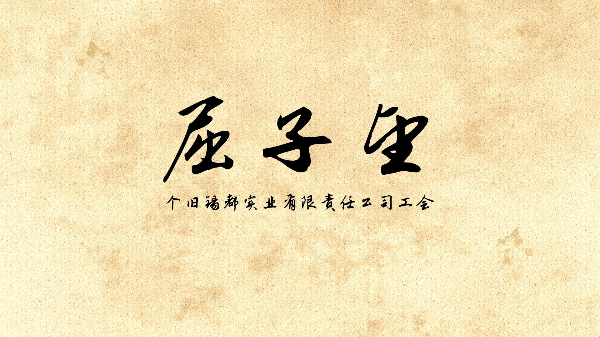 屈子
个旧锡都实业有限责任公司工会